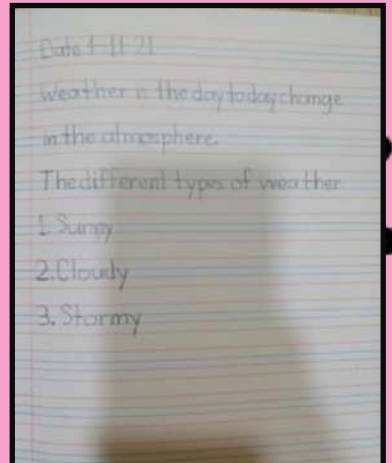 Date 1-11-21
Weather is the day to day change
in the atmosphere.
The different types of weather
1. Sunny
2. Cloudy
3. Stormy